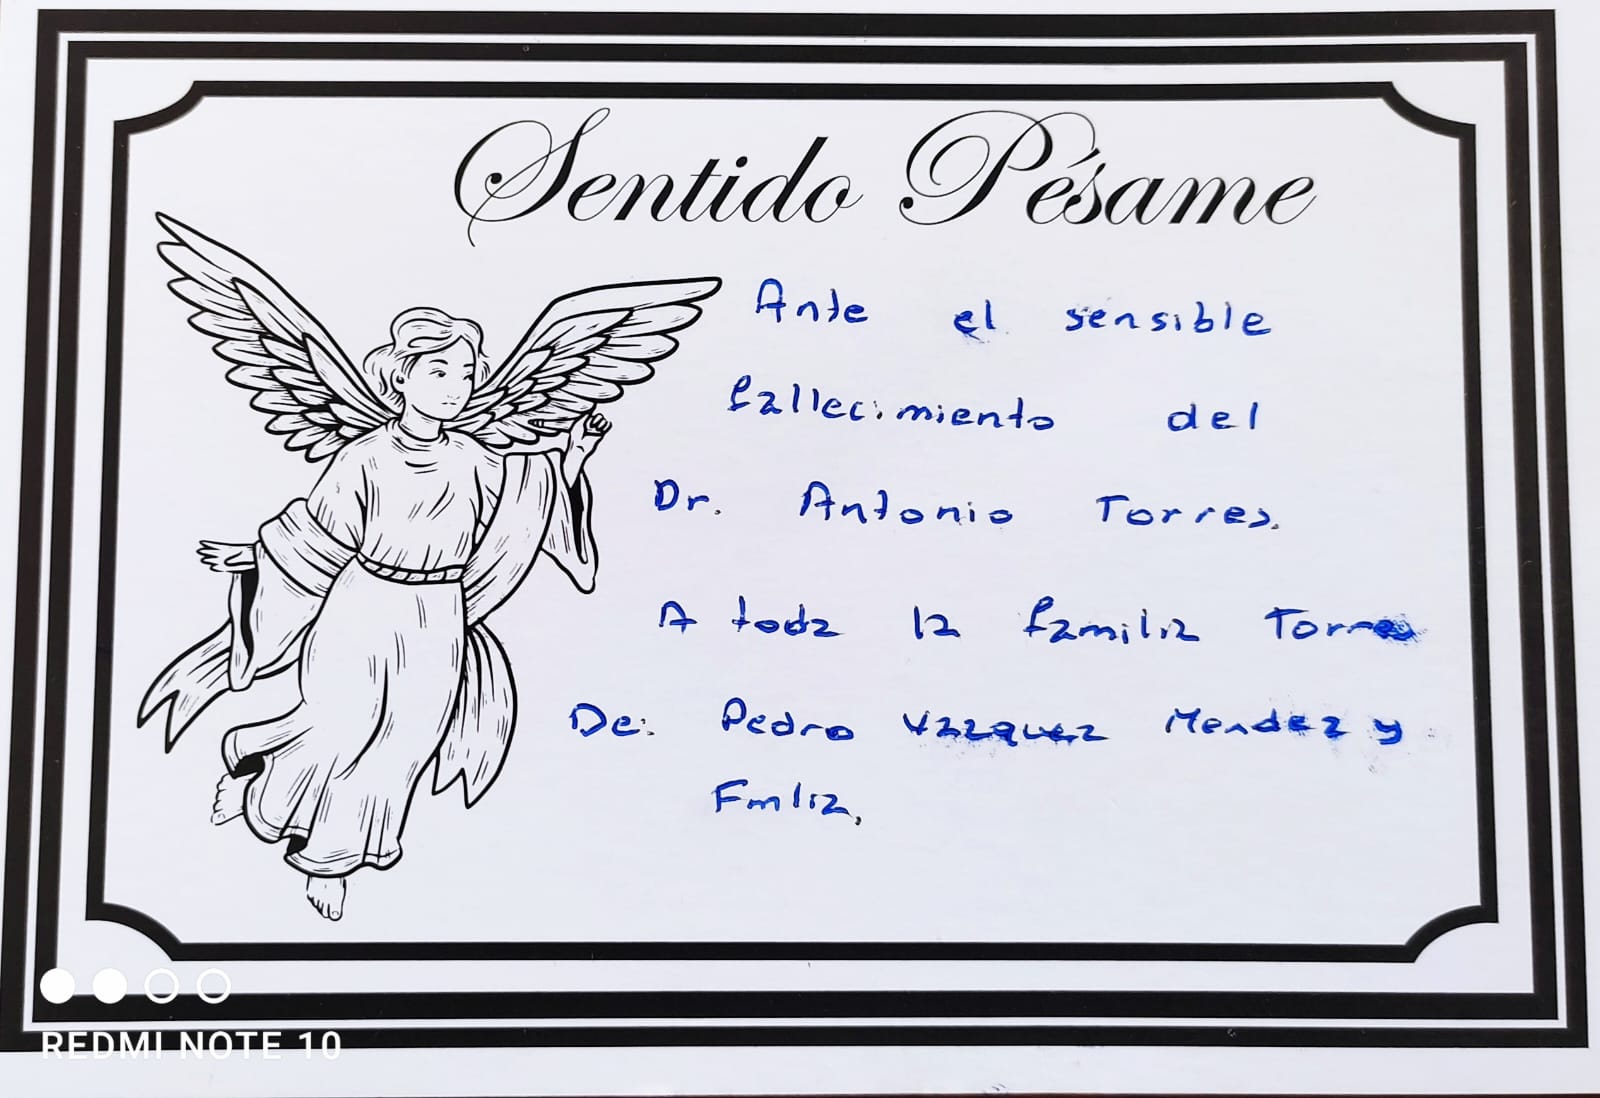 Sentido Pésame
Ante el sensible
fallecimiento del
Dr. Antonio Torres.
A toda la familia Torres
De: Pedro Vazquez Mendez y
Fmlia,
REDMI NOTE 10